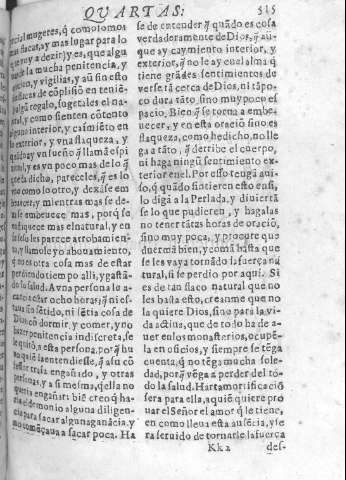 QVARTAS.
515
mugeres, q̃ como somos
flacas, ay mas lugar para lo
que voy a dezir; y es, que algu
de la mucha penitencia, y
oracion, y vigilias, y aũ sin esto
flacas de cõplisiõ en tenié
regalo, sugetales el na-
tural, y como sienten cõtento
alguno interior, y caimiẽto en
lo exterior, y vna flaqueza, y
quãdo ay vn sueño q̃ llamã espi
ritual, y es vn poco mas de lo q̃
queda dicho, pareceles, q̃ es lo
vno como lo otro, y dexãse em
beuecer; y mientras mas se de-
xan se embeuecẽ mas, porq̃ se
enflaquece mas el natural, y en
su seso les parece arrobamien-
to, y llamole yo abouamiento,
que no es otra cosa mas de estar
perdiendo tiempo alli, y gastã-
do su salud. A vna persona le a-
caecia estar ocho horas; q̃ ni es-
tauã sin sẽtido, ni sẽtia cosa de
Dios, cõ dormir, y comer, y no
hazer penitencia indiscreta, se
le quitó a esta persona, porq̃ hu
uo quiẽ la entendiesse, q̃ a su cõ
fessor traìa engañado, y otras
personas, y a si mesma, q̃ ella no
queria engañar: biẽ creo q̃ ha-
ria el demonio alguna diligen-
cia para sacar alguna ganãcia, y
no començaua a sacar poca. Ha
se de entender q̃ quãdo es cosa
verdaderamente de Dios, q̃ aũ-
que ay caymiento interior, y
exterior, q̃ no le ay en el alma q̃
tiene grãdes sentimientos de
verse tã cerca de Dios, ni tãpo-
co dura tãto, sino muy poco es
pacio. Bien q̃ se torna a embe-
uecer, y en esta oracion sino es
flaqueza, como he dicho, no lle
ga a tãto, q̃ derribe el cuerpo,
ni haga ningũ sentimiento ex-
terior en el. Por esso tenga aui-
so, q̃ quãdo sintieren esto en si,
lo digã a la Perlada, y diuiertã
se lo que pudieren, y hagalas
no tener tãtas horas de oraciõ,
sino muy poca, y procure que
duermã bien, y comã hasta que
se les vaya tornãdo la fuerça na
tural, si se perdio por aqui. Si
es de tan flaco natural que no
les basta esto, creanme que no
la quiere Dios, sino para la vi-
da actiua, que de todo ha de a-
uer en los monesterios, ocupẽ
la en oficios, y siempre se tẽga
cuenta, q̃ no tẽga mucha sole-
dad, porq̃ vẽga a perder del to-
do la salud. Harta mortificaciõ
sera para ella, aqui quiere pro
uar el Señor el amor q̃ le tiene,
en como lleua esta ausẽcia, y se
ra seruido de tornarle la fuerça
Kk 2
des-